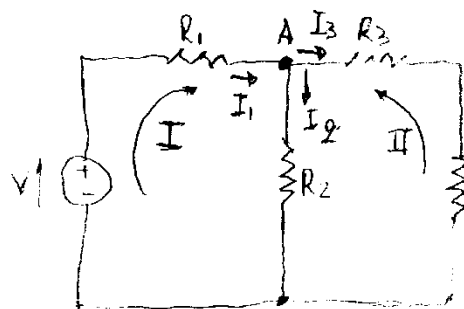 R1 A I3 R3
I1
I2
I
II
V
+
-
R2